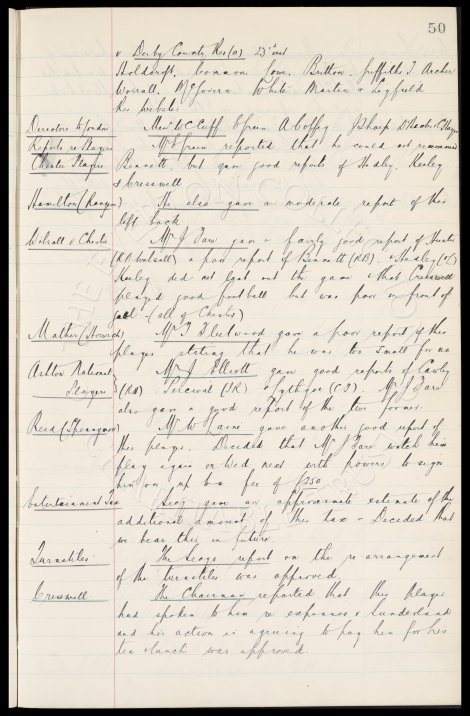 50
v Derby County Res (a) 23rd inst
Holdcroft. Common Lowe. Britton. Griffiths T. Archer
Worrall. McGovern. White Martin & Loyfield
Res Webster
Directors to London Messrs W Cuff E Green A Coffey J Sharp D Kirkton
Reports re Players Mr E Green reported that he could not recommend
Chester Players Bennett, but gave good reports of Hadley, Keeley
& Cresswell
Hamilton (Rangers) He also gave a moderate report of this
left back
Walsall v Chester Mr J Fare gave a fairly good report of Hunter
(RB Walsall) a poor report of Bennett (RB). & Hadley (
Keeley did not last out the game & that Cresswell
played good football but was poor in front of
goal - (all of Chester)
Mather (Horwich) Mr T Fleetwood gave a poor report of this
player stating that he was too small for us
Ashton National Mr J Elliott gave good reports of Cawley
Players (RB) Percival (IR) & Lythgoe (CF). Mr J Fare
also gave a good report of the two former.
Reid (Spennymoor) Mr W Sawyer gave another good report of
this player. Decided that Mr J Fare watch him
play again on Wed next with powers to sign
him on, up to a fee of £250
Entertainment Tax Secy gave an approximate estimate of the
additional amount of this tax - Decided that
we bear this in future.
Turnstiles The Secys report on the re-arrangement
of the turnstiles was approved.
Cresswell The Chairman reported that this player
had spoken to him re expenses v Sunderland
and his action in agreeing to pay him for his
tea & lunch was approved.